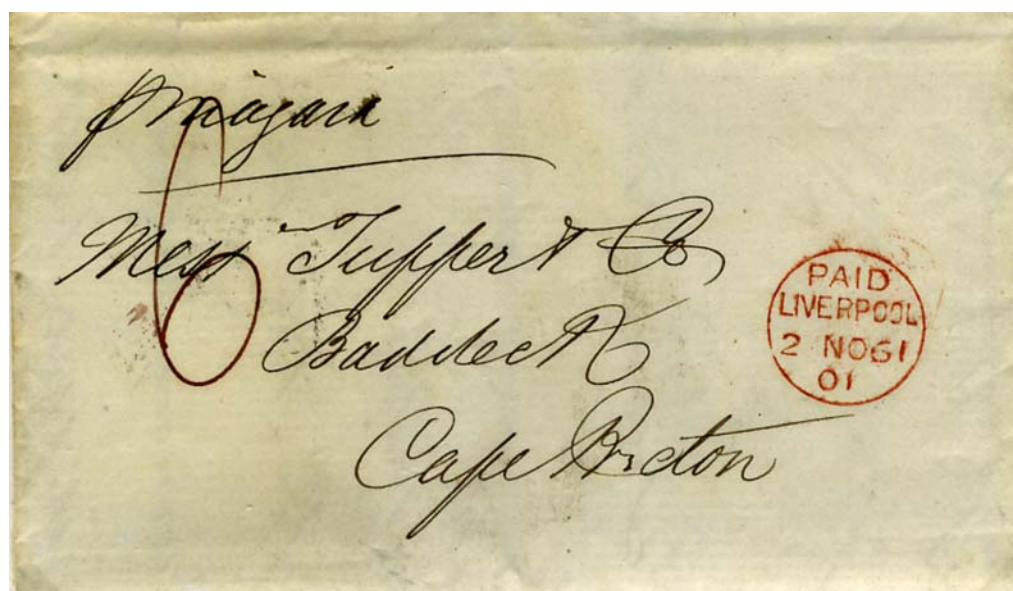 p Niagara
6
Mess Tupper & Co
Baddeck
Cape Breton
PAID
LIVERPOOL
2 NO61
01